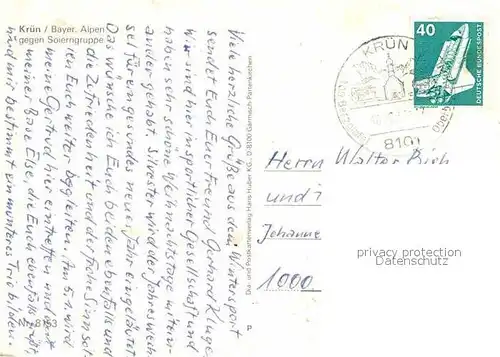 Krün / Bayer. Alpen
gegen Soierngruppe
Viele herzliche Grüße aus dem Wintersport
sendet Euch Euer Freund Gerhard Kluge.
Wir sind hier in sportlicher Gesellschaft und
haben sehr schöne Weihnachtstage mitein-
ander gehabt. Silvester wird der Jahreswech-
sel für ein gesundes neues Jahr eingeläutet
Das wünsche ich Euch beiden ebenfalls und
die Zufriedenheit und der frohe Sinn sol-
len Euch weiter begleiten. Am 5.1. wird
meine Gertrud hier eintreffen und mit
meiner Base Else, die Euch ebenfalls grüßt
sind wir bestimmt ein munteres Trio bilden.
Nr. 8153
Dia- und Postkartenverlag Hans Huber KG, D-8100 Garmisch-Partenkirchen
P
KRÜN
8101
40
DEUTSCHE BUNDESPOST
Herrn Walter
und
Johanne
1000
privacy protection
Datenschutz